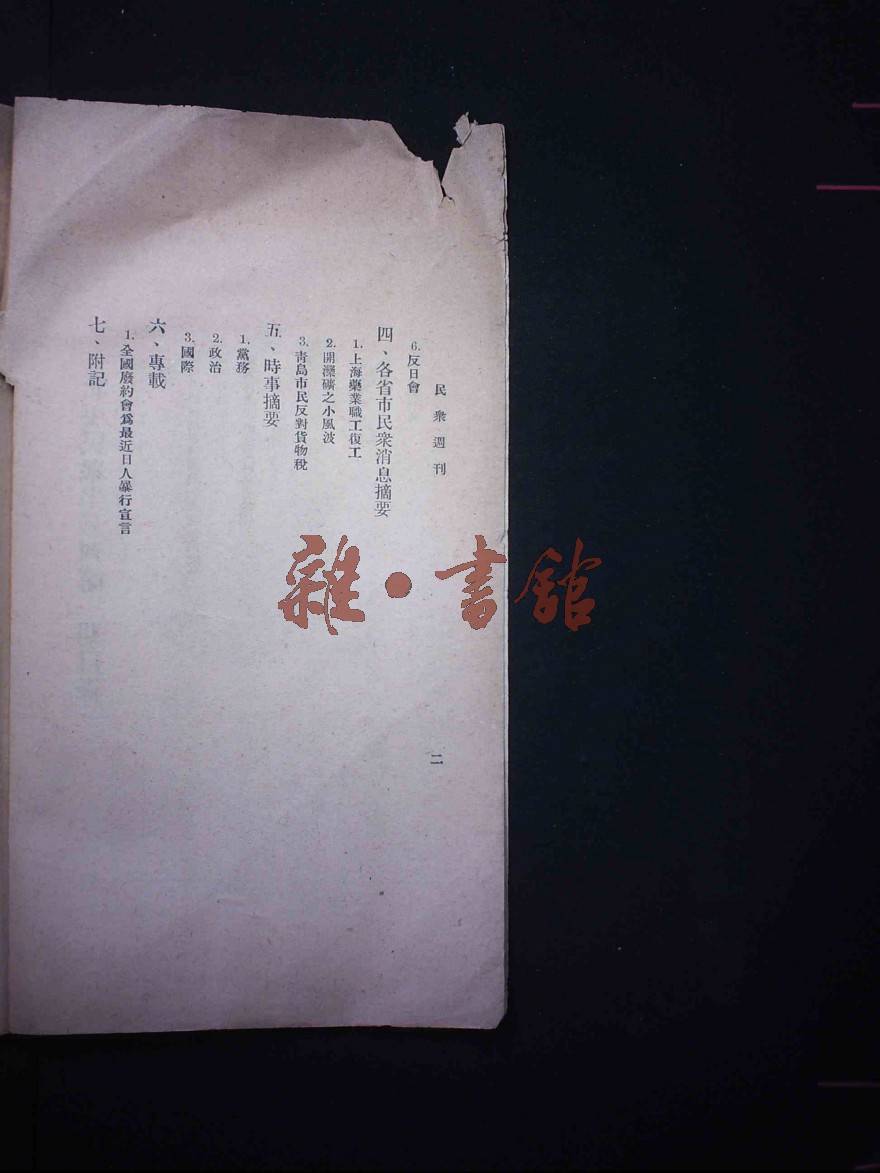 民衆週刊
二
6.反日會
四、各省市民衆消息摘要
1.上海藥業職工復工
2.開灤礦之小風波
3.青島市民反對貨物稅
五、時事摘要
1.黨務
2.政治
3.國際
六、專載
1.全國廢約會爲最近日人暴行宣言
七、附記
雜•書館